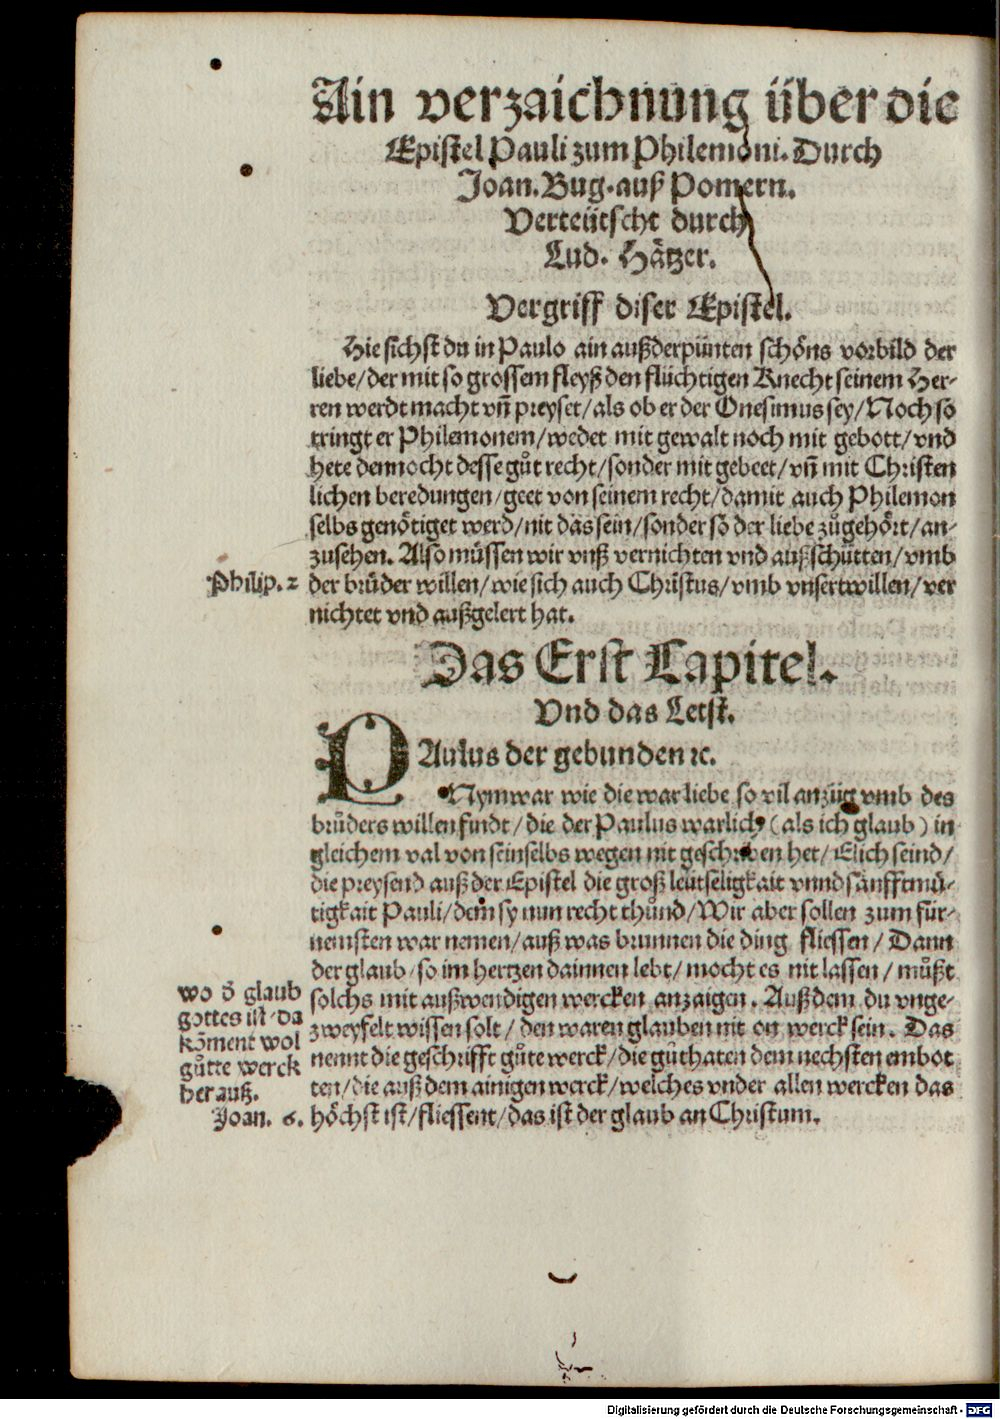 Ain verzaichnung über die
Epistel Pauli zum Philemoni. Durch
Joan. Bug. auß Pomern.
Verteütscht durch
Lud. Hätzer.
Vergriff diser Epistel.
Hie sichst du in Paulo ain außderpünten schöns vorbild der
liebe/ der mit so grossem fleyß den flüchtigen Knecht seinem Her-
ren werdt macht vñ preyset/ als ob er der Onesimus sey/ Noch so
tringt er Philemonem/ wedet mit gewalt noch mit gebott/ vnd
hete dennocht desse gůt recht/ sonder mit gebeet/ vñ mit Christen
lichen beredungen/ geet von seinem recht/ damit auch Philemon
selbs genötiget werd/ nit das sein/ sonder so der liebe zůgehört/ an-
zusehen. Also müssen wir vnß vernichten vnd außschütten/ vmb
Philip. 2
der brüder willen/ wie sich auch Christus/ vmb vnsertwillen/ ver
nichtet vnd außgelert hat.
Das Erst Capitel.
Vnd das Letst.
PAulus der gebunden ꝛc.
Nym war wie die war liebe so vil anzüg vmb des
brůders willen findt/ die der Paulus warlich (als ich glaub) in
gleichem val von seinselbs wegen nit geschriben het/ Elich seind/
die preysend auß der Epistel die groß leütseligkait vnnd sänfftmü-
tigkait Pauli/ dem̃ sy nun recht thůnd/ Wir aber sollen zum für-
nemsten war nemen/ auß was brunnen die ding fliessen/ Dann
der glaub/ so im hertzen dainnen lebt/ mocht es nit lassen/ můßt
solchs mit außwendigen wercken anzaigen. Auß dem du vnge-
zweyfelt wissen solt/ den waren glauben nit on werck sein. Das
nennt die geschrifft gůte werck/ die gůthaten dem nechsten embot
ten/ die auß dem ainigen werck/ welches vnder allen wercken das
höchst ist/ fliessent/ das ist der glaub an Christum.
wo d̃ glaub
gottes ist/ da
kõment wol
gůtte werck
her auß.
Joan. 6.
Digitalisierung gefördert durch die Deutsche Forschungsgemeinschaft - DFG